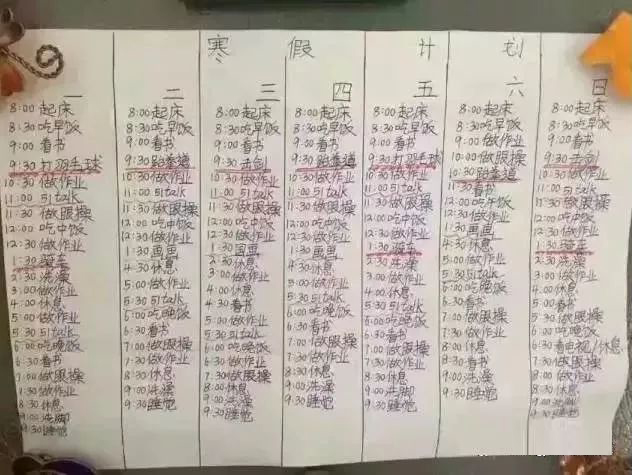 寒假计划
一
8:00起床
8:30吃早饭
9:00看书
9:30打羽毛球
10:30做作业
11:00 51talk
11:30做眼操
12:00吃中饭
12:30做作业
1:30骑车
2:30洗澡
3:00做作业
4:00休息
4:30看书
5:00做作业
5:30 51talk
6:00吃晚饭
6:30看书
7:00做眼操
7:30做作业
8:30休息
9:00洗脚
9:30睡觉
二
8:00起床
8:30吃早饭
9:00看书
9:30跆拳道
10:30做作业
11:00 51talk
11:30做眼操
12:00吃中饭
12:30做作业
1:30画画
4:30休息
5:00做作业
5:30 51talk
6:00吃晚饭
6:30看书
7:00做眼操
7:30做作业
8:30休息
9:00洗澡
9:30睡觉
三
8:00起床
8:30吃早饭
9:00看书
9:30击剑
10:30做作业
11:00 51talk
11:30做眼操
12:00吃中饭
12:30做作业
1:30画画
2:30休息
3:00做作业
4:00休息
4:30看书
5:00做作业
5:30 51talk
6:00吃晚饭
6:30看书
7:00做眼操
7:30做作业
8:30休息
9:00洗澡
9:30睡觉
四
8:00起床
8:30吃早饭
9:00看书
9:30跆拳道
10:30做作业
11:00 51talk
11:30做眼操
12:00吃中饭
12:30做作业
1:30画画
4:30休息
5:00做作业
5:30 51talk
6:00吃晚饭
6:30看书
7:00做眼操
7:30做作业
8:30休息
9:00洗脚
9:30睡觉
五
8:00起床
8:30吃早饭
9:00看书
9:30打羽毛球
10:30做作业
11:00 51talk
11:30做眼操
12:00吃中饭
12:30做作业
1:30骑车
2:30洗澡
3:00做作业
4:00休息
4:30看书
5:00做作业
5:30 51talk
6:00吃晚饭
6:30看书
7:00做眼操
7:30做作业
8:30休息
9:00洗脚
9:30睡觉
六
8:00起床
8:30吃早饭
9:00做作业
10:00做眼操
10:30跆拳道
11:30看书
12:00吃中饭
12:30做作业
1:30画画
4:30休息
5:00做作业
5:30 51talk
6:00吃晚饭
6:30看书
7:00做眼操
7:30做作业
8:00休息
9:00洗澡
9:30睡觉
日
8:00起床
8:30吃早饭
9:00看书
9:30击剑
10:30做作业
11:00 51talk
11:30做眼操
12:00吃中饭
12:30做作业
1:30骑车
2:30洗澡
3:00做作业
4:00休息
4:30看书
5:00做作业
5:30 51talk
6:00吃晚饭
6:30看电视/休息
7:30做眼操
8:00做作业
8:30休息
9:00洗脚
9:30睡觉